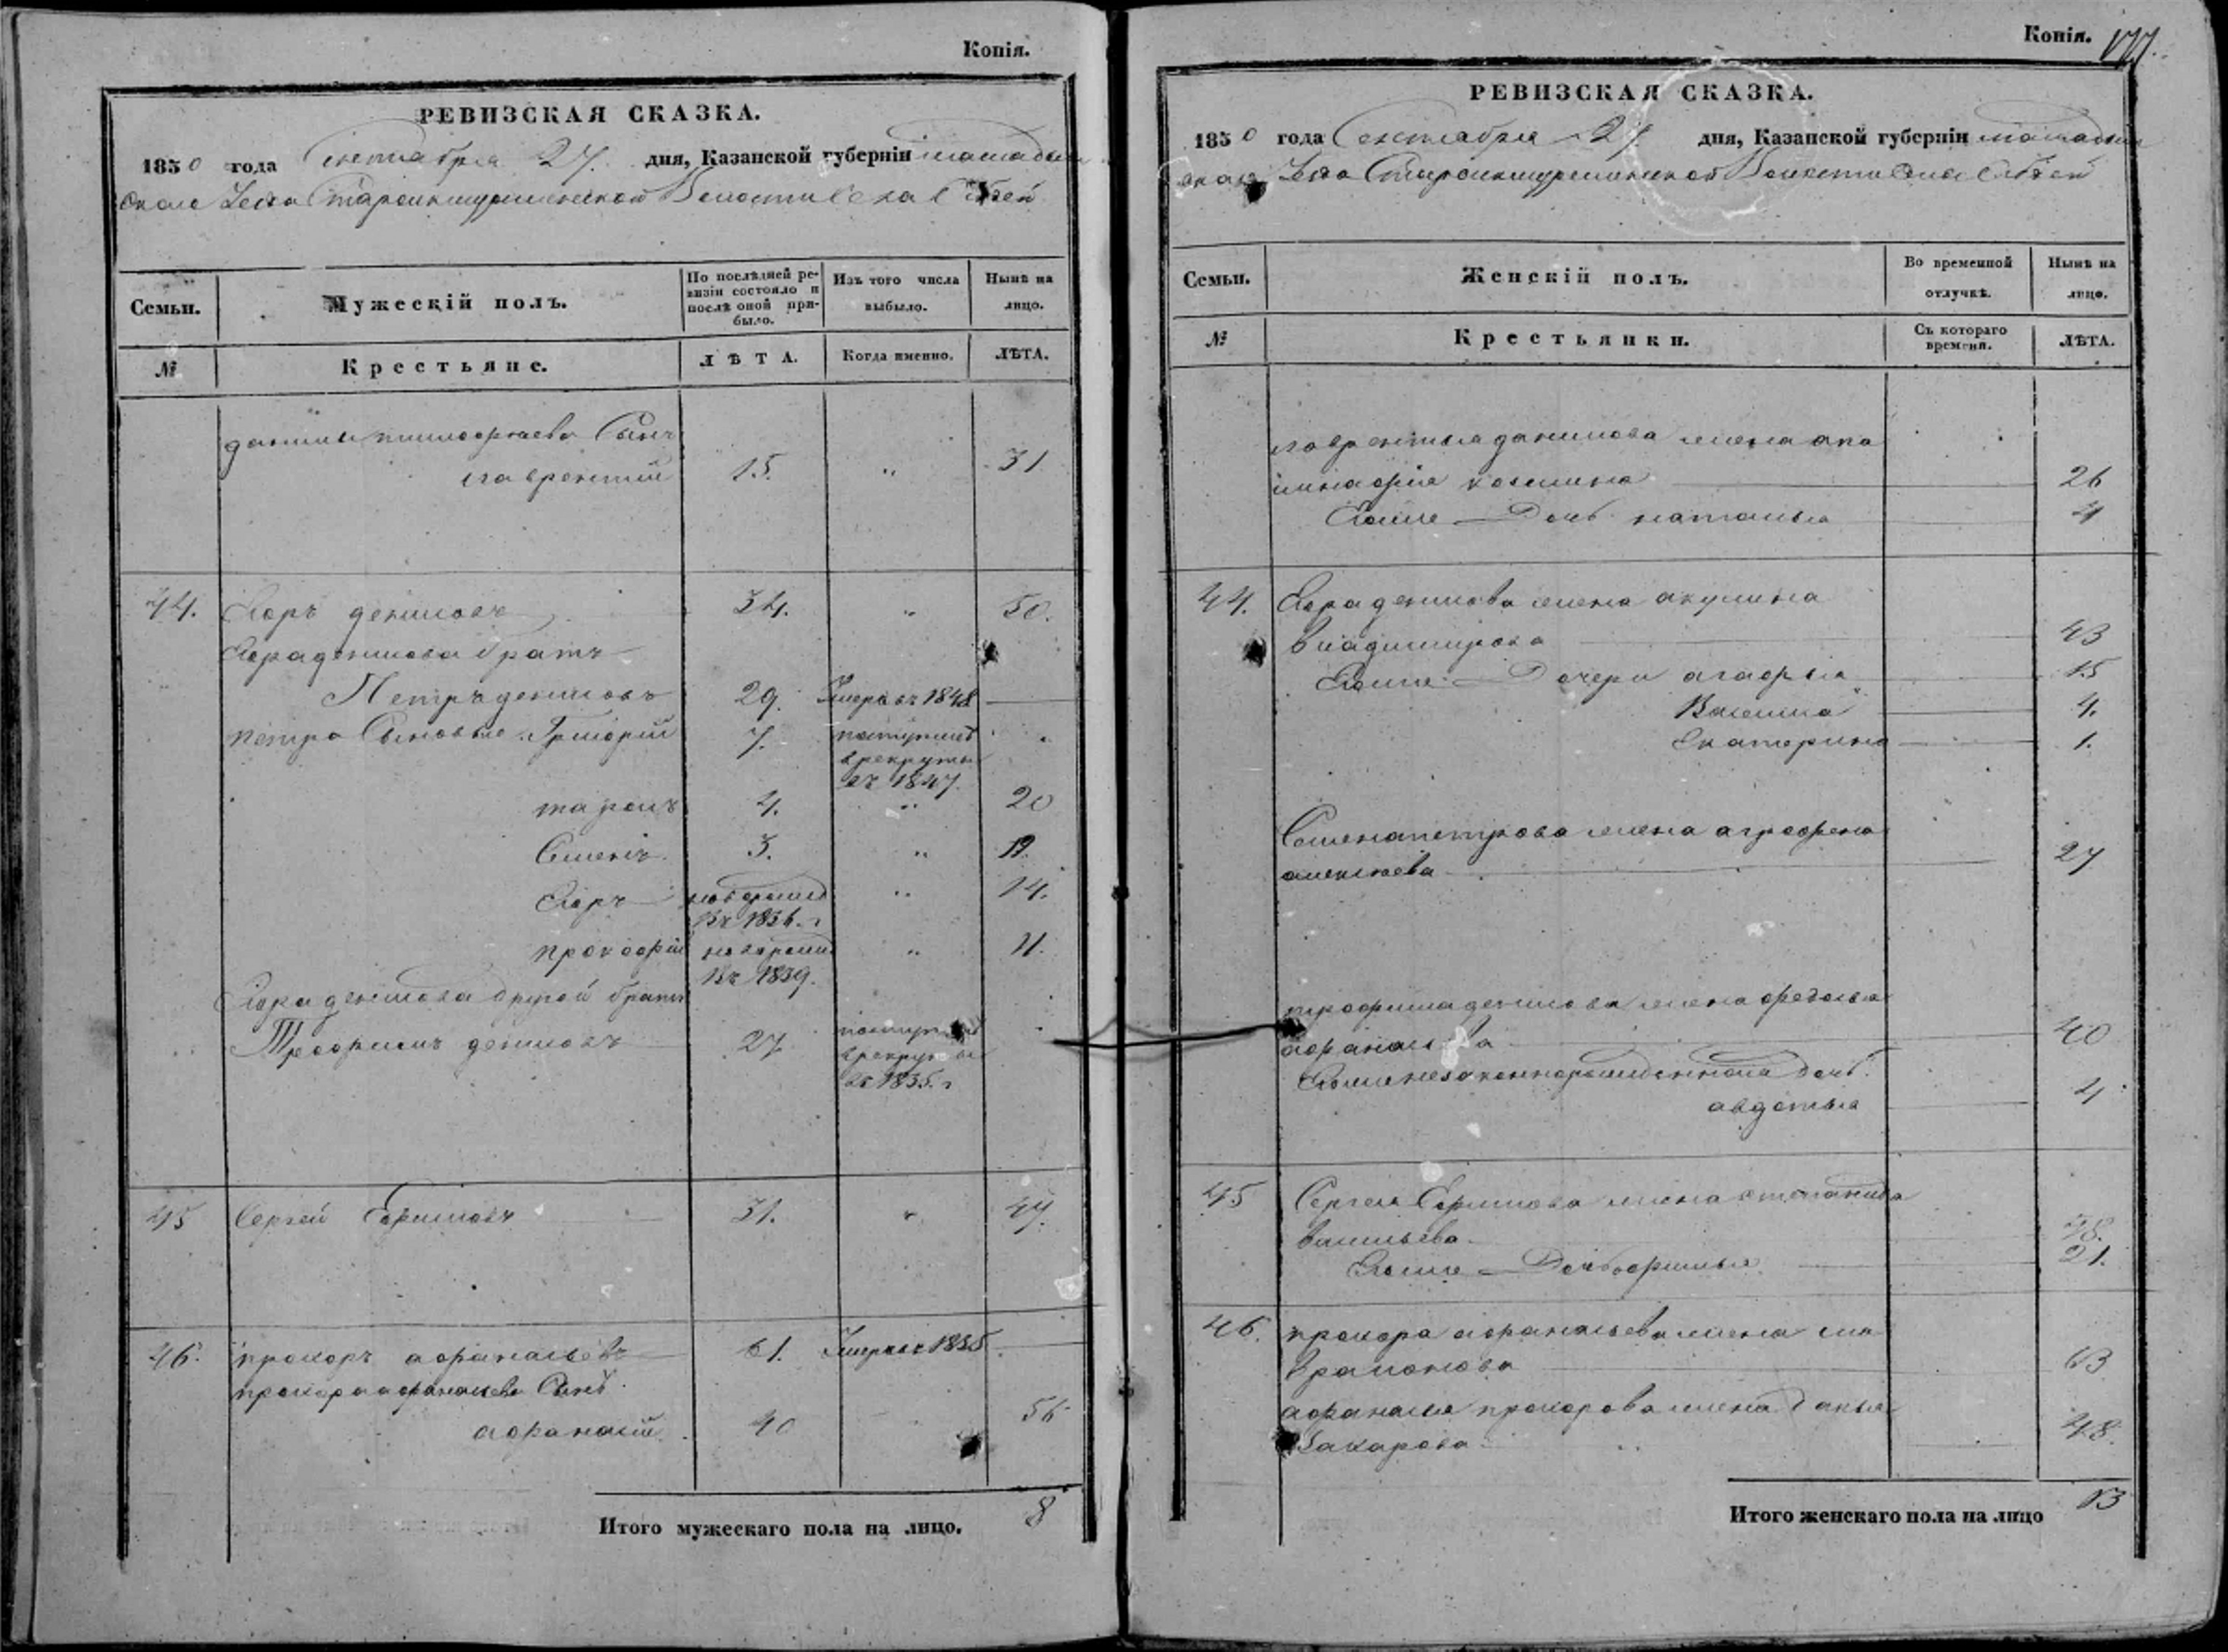 Копія.
РЕВИЗСКАЯ СКАЗКА.
1850 года Сентября 27. дня, Казанской губерніи мамадыш
скаго Уезда Волости Села
Семьи.
Мужескій полъ.
По послѣдней ре-
визіи состояло и
послѣ оной при-
было.
Изъ того числа
выбыло.
Нынѣ на
лицо.
№
Крестьяне.
ЛѢТА.
Когда именно.
ЛѢТА.
данилы тимофеева Сынъ
лаврентий 15. „ 31
44. денисовъ 34. „ 50.
денисова братъ
Петръ денисовъ 29. Умеръ въ 1848
петра Сыновья Григорий 7. поступилъ
в рекруты
въ 1847.
4. „ 20
Семенъ 3. „ 19.
новорожд „ 14.
Въ 1836. г
прокофій новорожд „ 11.
Въ 1839.
денисова другой братъ
Трофимъ денисовъ 27
в рекруты
въ 1835. г
45 Сергей Ефимовъ 31. „ 47.
46. прохоръ афанасьевъ 61. Умеръ въ 1835
прохора афанасьева Сынъ
афанасий 40 56
Итого мужескаго пола на лицо. 8
Копія. 177.
РЕВИЗСКАЯ СКАЗКА.
1850 года Сентября 27. дня, Казанской губерніи мамадыш
скаго Уезда Волости Села
Семьи.
Женскій полъ.
Во временной
отлучкѣ.
Нынѣ на
лицо.
№
Крестьянки.
Съ котораго
времени.
ЛѢТА.
лаврентья данилова жена апа
линарія козмина 26
Его же Дочь наталья 4
44. денисова жена акулина
владимирова 43
Его же Дочери агафья 15
4.
Екатерина 1.
Семена петрова жена аграфена
алексеева 27
трофима денисова жена федосья
афанасьева 40
Ея же незаконнорожденная дочь
авдотья 4
45 Сергея Ефимова жена степанида
васильева 48.
Его же Дочь афимья 21.
46. прохора афанасьева жена
63
афанасья прохорова жена дарья
Захарова 48.
Итого женскаго пола на лицо 13